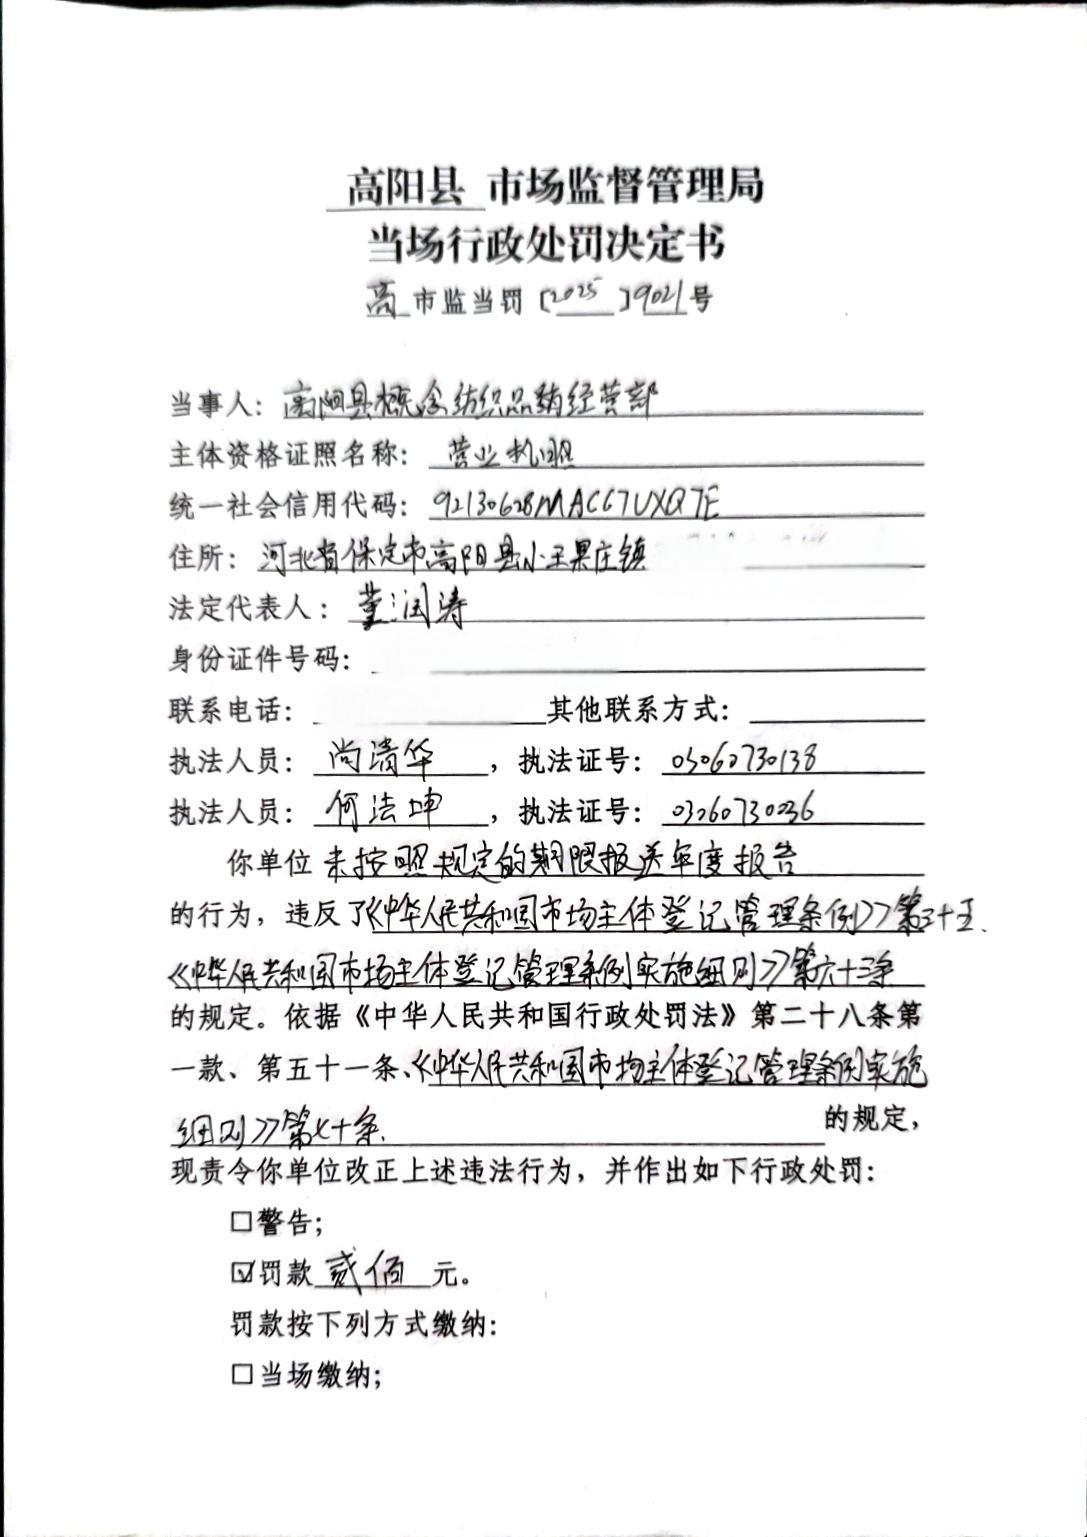 高阳县 市场监督管理局
当场行政处罚决定书
高 市监当罚〔2025〕9021号
当事人：高阳县概念纺织品销经营部
主体资格证照名称：营业执照
统一社会信用代码：92130628MAC67UXQ7E
住所：河北省保定市高阳县小王果庄镇
法定代表人：董润涛
身份证件号码：
联系电话： 其他联系方式：
执法人员：尚清华，执法证号：03060730138
执法人员：何法坤，执法证号：03060730036
你单位 未按照规定的期限报送年度报告
的行为，违反了《中华人民共和国市场主体登记管理条例》第三十五、
《中华人民共和国市场主体登记管理条例实施细则》第六十三条
的规定。依据《中华人民共和国行政处罚法》第二十八条第
一款、第五十一条、《中华人民共和国市场主体登记管理条例实施
细则》第七十条、 的规定，
现责令你单位改正上述违法行为，并作出如下行政处罚：
□警告；
☑罚款 贰佰 元。
罚款按下列方式缴纳：
□当场缴纳；